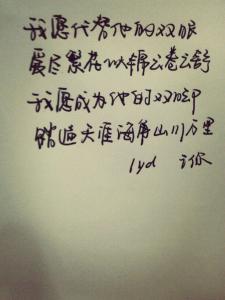 我愿代替他的双眼
爱尽繁花似锦云卷云舒
我愿成为他的双脚
踏遍天涯海角山川万里
lyd